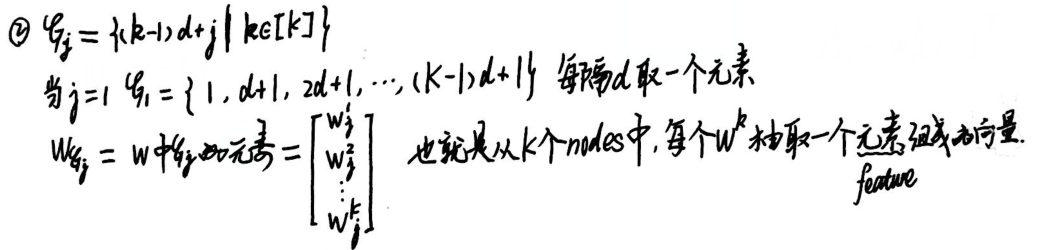 ② 𝒢_j = {(k-1)d+j | k∈[K]}
当j=1 𝒢_1 = {1, d+1, 2d+1, ..., (K-1)d+1} 每隔d取一个元素
W_{𝒢_j} = W中𝒢_j的元素 = [W_j^1 W_j^2 ⋮ W_j^K] 也就是从K个nodes中,每个W^k抽取一个元素组成的向量.
feature